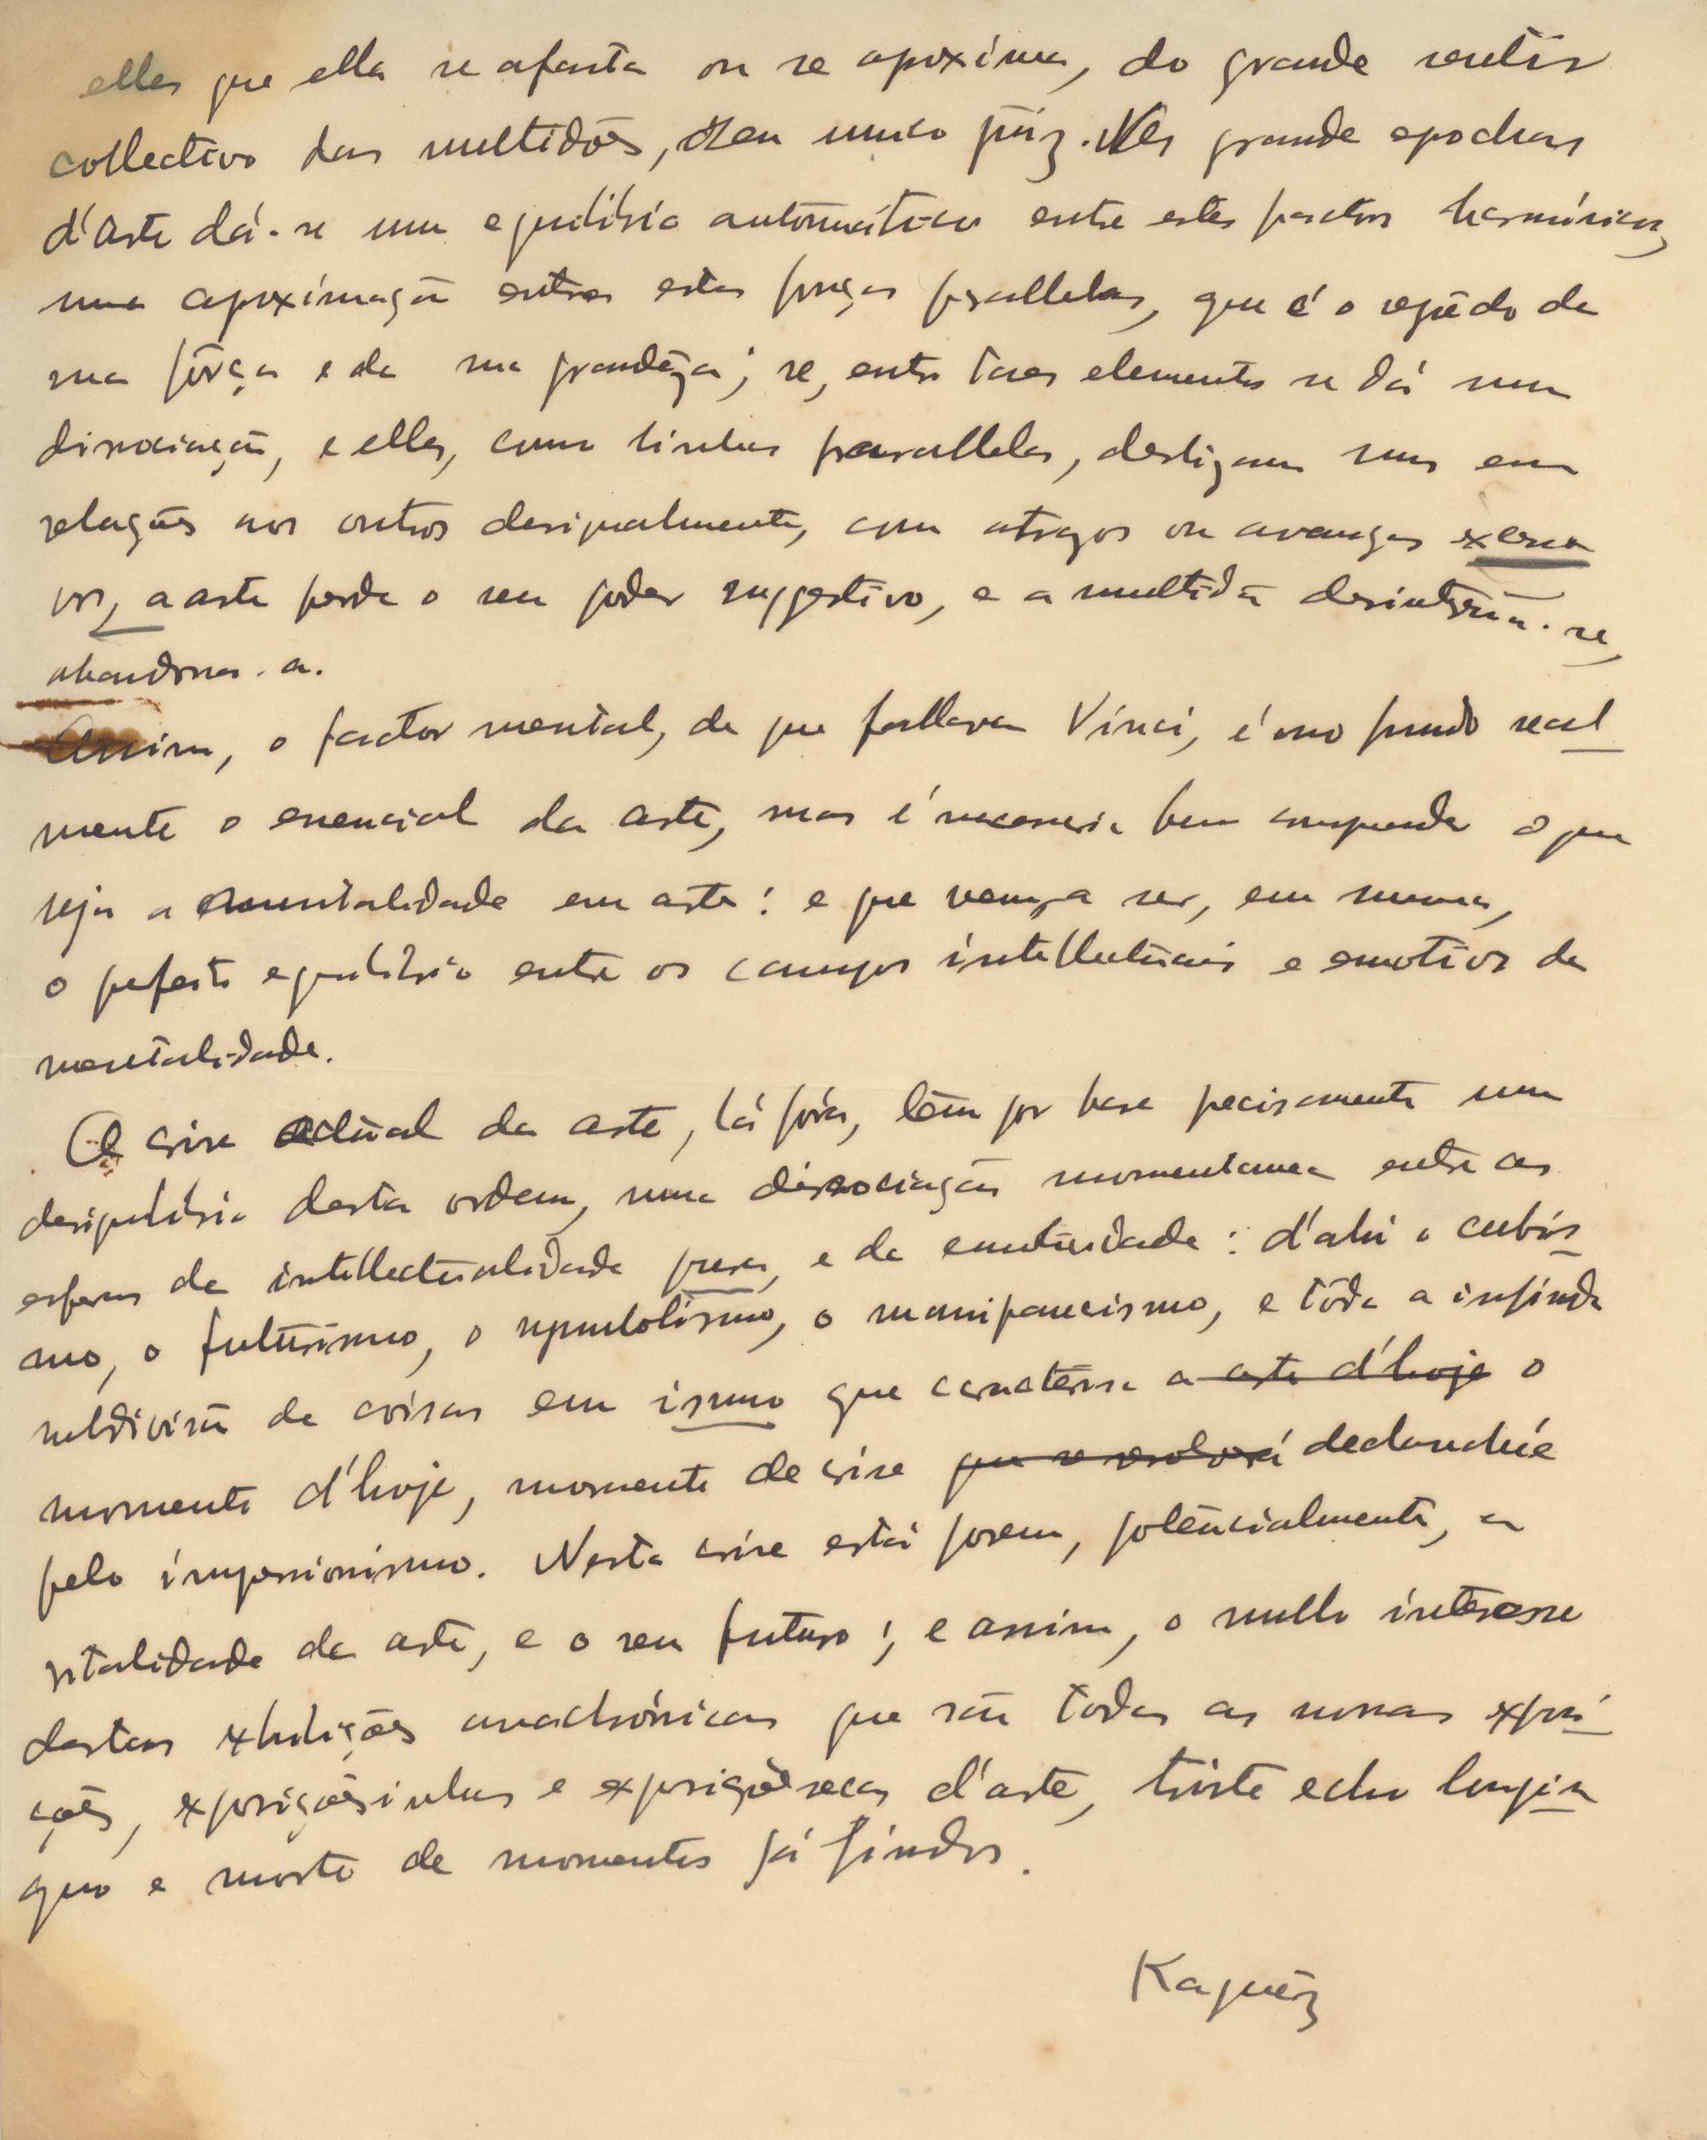 elles que ella se afasta ou se aproxima, do grande sentir
collectivo das multidões, seu unico juiz. Nas grande epochas
d'arte dá-se um equilibrio automático entre estes factores harmónicos,
uma aproximação entre estas forças parallelas, que é o segrêdo da
sua fôrça e da sua grandêza; se, entre taes elementos se dá uma
dissociação, e elles, como linhas parallelas, deslizam uns em
relações aos outros desigualmente, com atrazos ou avanços
a arte perde o seu poder suggestivo, e a multidão desinteréssa-se,
abandona-a.
Assim, o factor mental, de que fallava Vinci, é no fundo real
mente o essencial da arte, mas é necessario bem comprender o que
seja a mentalidade em arte: e que vem a ser, em summa,
o perfeito equilibrio entre os campos intellectuais e emotivos da
mentalidade.
A crise actual da arte, lá fóra, têm por base precisamente um
desiquilibrio desta ordem, uma dissociação momentanea entre as
esferas da intellectualidade pura, e da emotividade: d'ahi o cubis
mo, o futurismo, o symbolismo, o manipancismo, e tôda a infinda
subdivisão de coisas em ismo que caracterisa a arte d'hoje o
momento d'hoje, momento de crise que se resolverá declanchée
pelo impressionismo. Nesta crise está porem, potencialmente, a
vitalidade da arte, e o seu futuro; e assim, o nullo interesse
destas exhibições anachrónicas que são todas as nossas exposi
ções, exposiçõesinhas e exposiçõesecas d'arte, triste echo longin
quo e morto de momentos já findos.